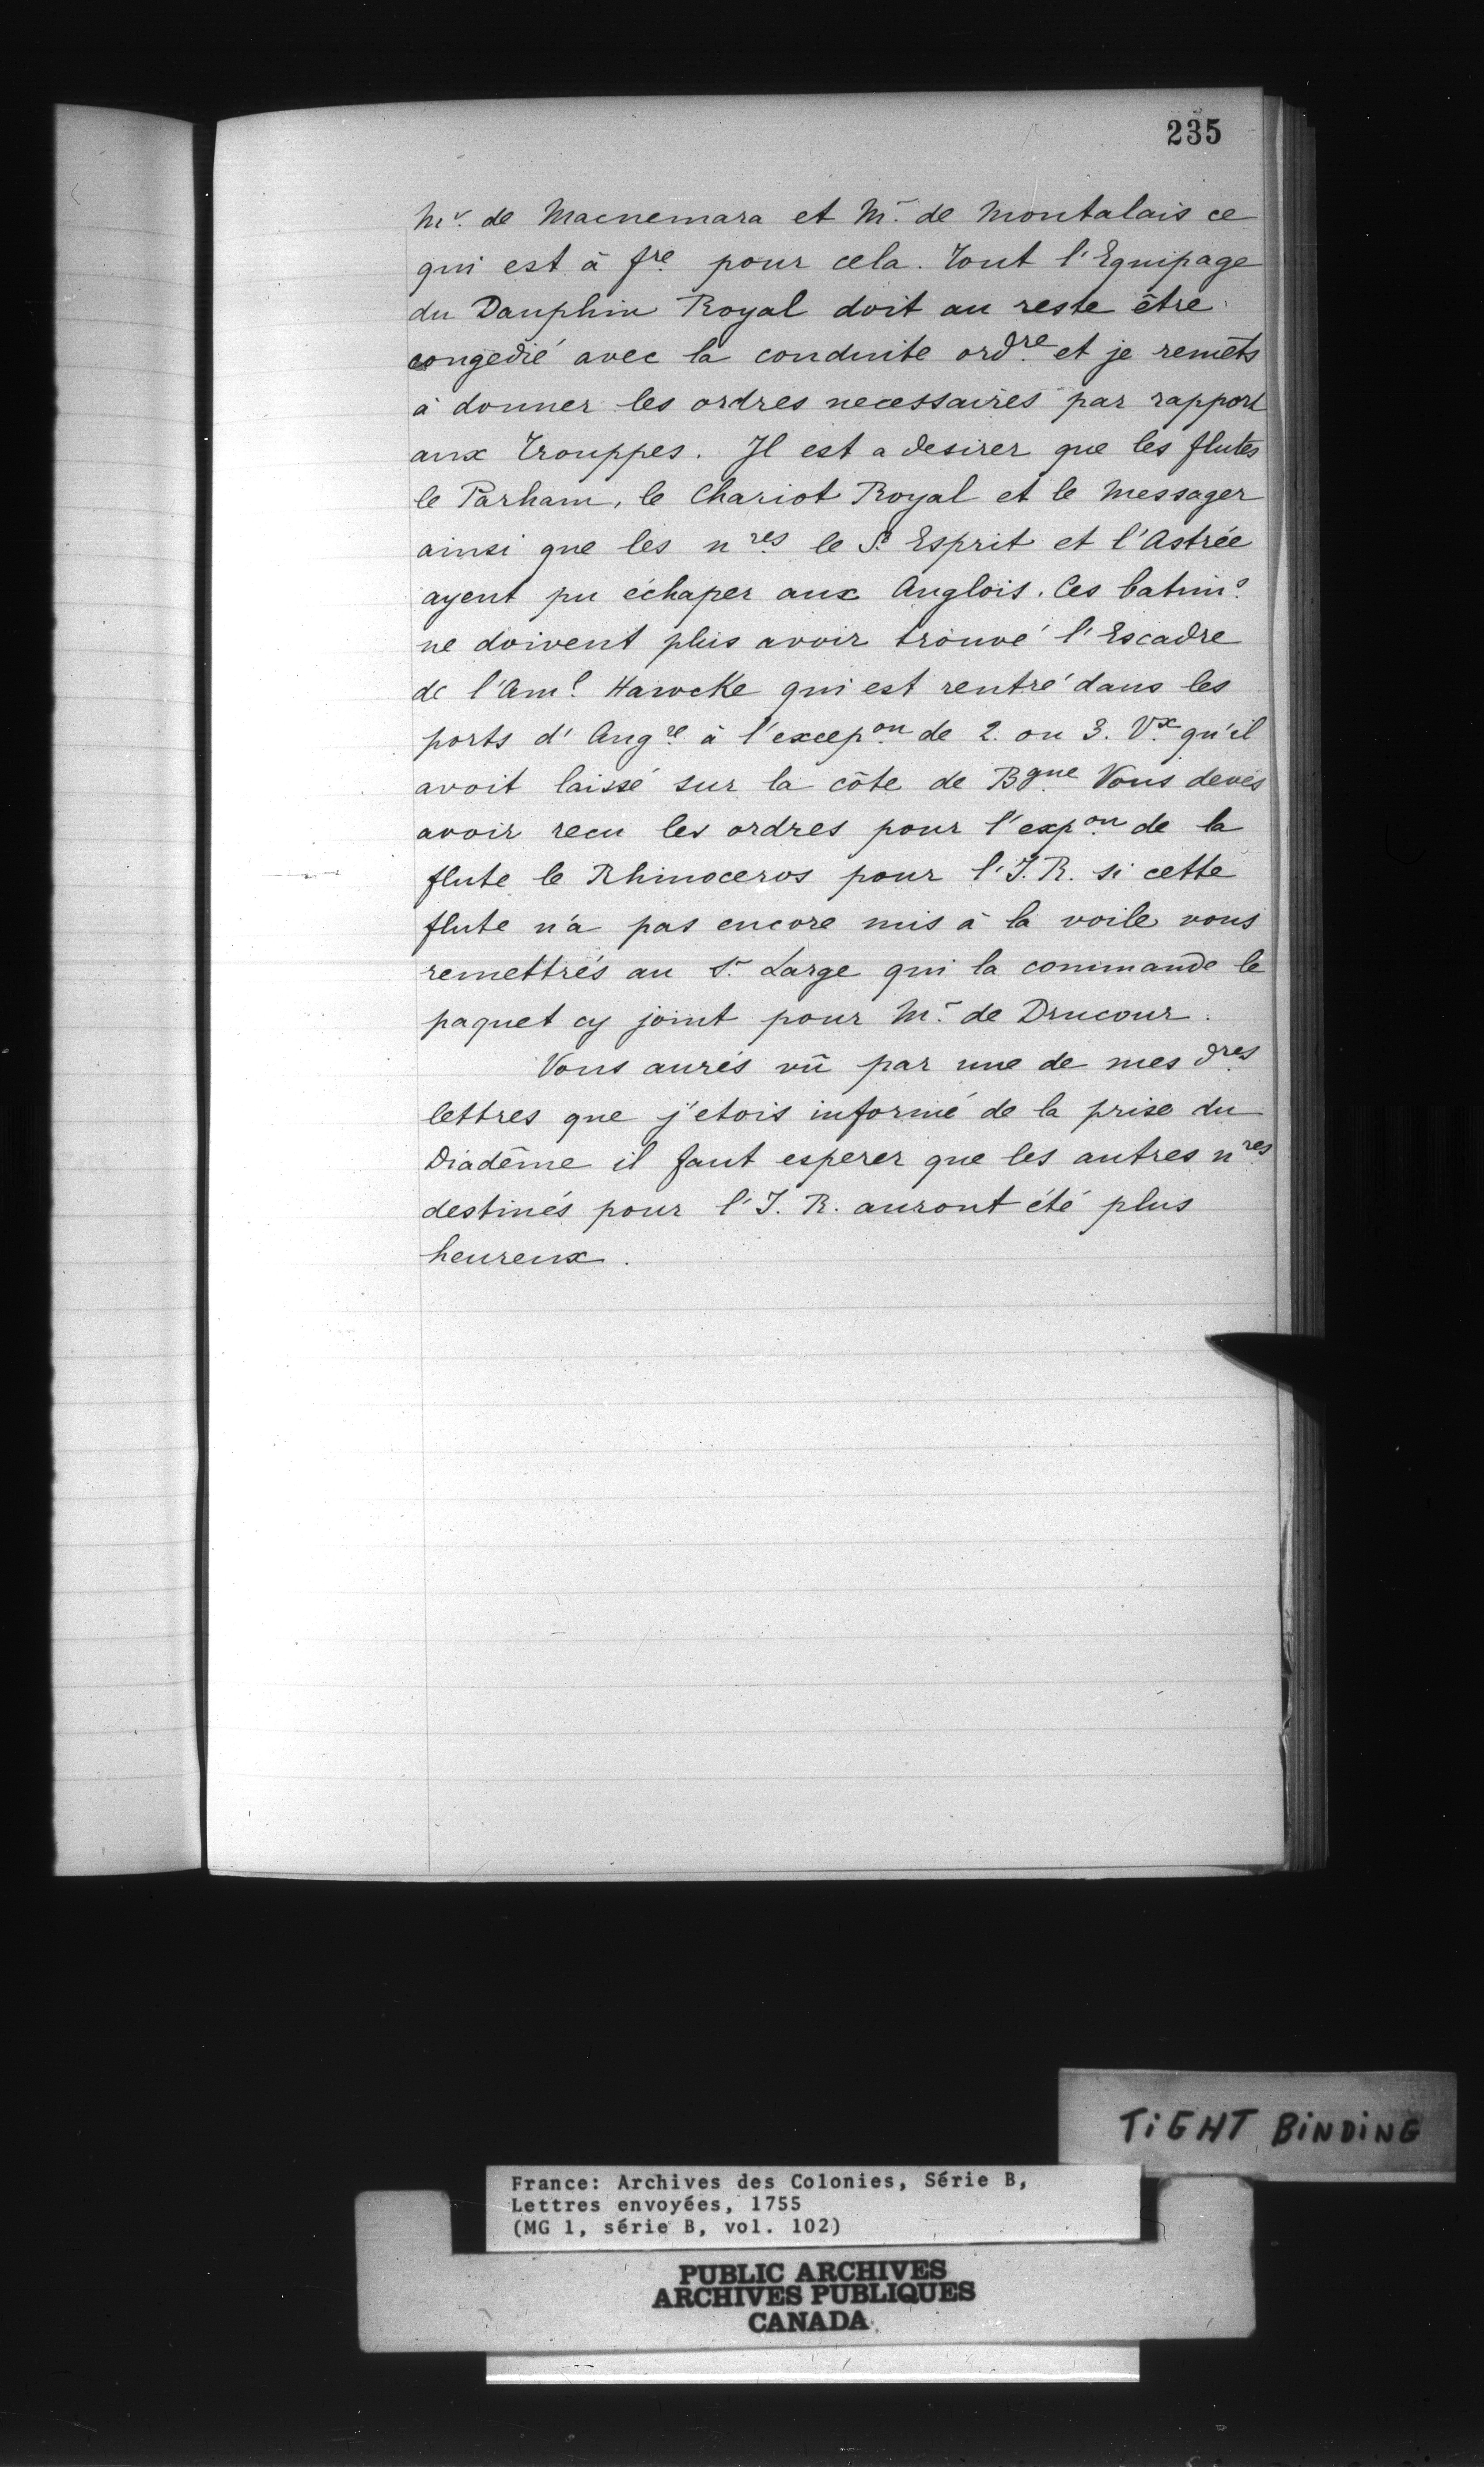 235
Mr. de Macnemara et Mr. de Montalais ce
qui est à fre. pour cela. Tout l'Equipage
du Dauphin Royal doit au reste être
congedié avec la conduite ordre. et je remèts
à donner les ordres necessaires par rapport
aux Trouppes. Il est a desirer que les flutes
le Parham, le Chariot Royal et le Messager
ainsi que les nres. le St. Esprit et l'Astrée
ayent pu échaper aux Anglois. Ces batims.
ne doivent plus avoir trouvé l'Escadre
de l'Aml. Hawcke qui est rentré dans les
ports d'Angre. à l'excepon. de 2. ou 3. Vx. qu'il
avoit laissé sur la côte de Bgne. Vous devés
avoir recu les ordres pour l'expon. de la
flute le Rhinoceros pour l'I. R. si cette
flute n'a pas encore mis à la voile vous
remettrés au Sr. Large qui la commande le
paquet cy joint pour Mr. de Drucour.
Vous aurés vû par une de mes dres.
lettres que j'etois informé de la prise du
Diadême il faut esperer que les autres nres.
destinés pour l'I. R. auront été plus
heureux.
TiGHT BiNDiNG
France: Archives des Colonies, Série B,
Lettres envoyées, 1755
(MG 1, série B, vol. 102)
PUBLIC ARCHIVES
ARCHIVES PUBLIQUES
CANADA